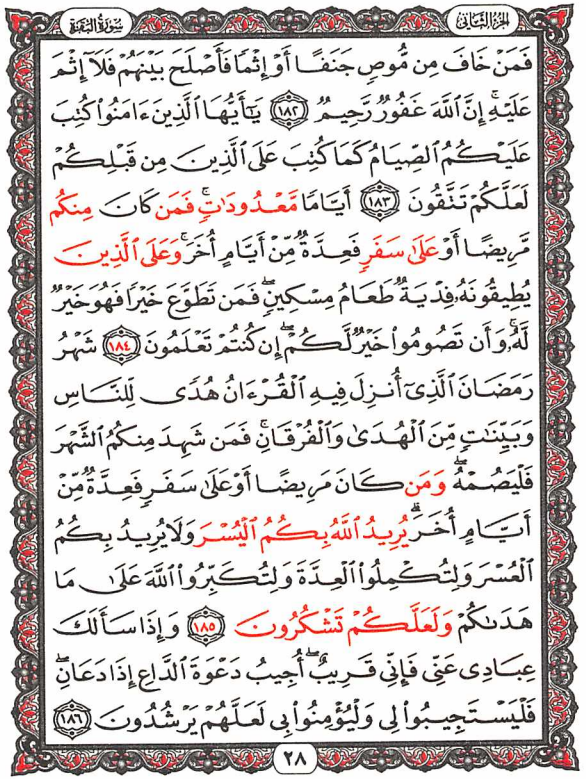 الجزء الثاني
سورة البقرة
فَمَنْ خَافَ مِن مُّوصٍ جَنَفًا أَوْ إِثْمًا فَأَصْلَحَ بَيْنَهُمْ فَلَآ إِثْمَ
عَلَيْهِۚ إِنَّ ٱللَّهَ غَفُورٌ رَّحِيمٌ ١٨٢ يَـٰٓأَيُّهَا ٱلَّذِينَ ءَامَنُوا۟ كُتِبَ
عَلَيْكُمُ ٱلصِّيَامُ كَمَا كُتِبَ عَلَى ٱلَّذِينَ مِن قَبْلِكُمْ
لَعَلَّكُمْ تَتَّقُونَ ١٨٣ أَيَّامًا مَّعْدُودَٰتٍۚ فَمَن كَانَ مِنكُم
مَّرِيضًا أَوْ عَلَىٰ سَفَرٍ فَعِدَّةٌ مِّنْ أَيَّامٍ أُخَرَۚ وَعَلَى ٱلَّذِينَ
يُطِيقُونَهُۥ فِدْيَةٌ طَعَامُ مِسْكِينٍۖ فَمَن تَطَوَّعَ خَيْرًا فَهُوَ خَيْرٌ
لَّهُۥۚ وَأَن تَصُومُوا۟ خَيْرٌ لَّكُمْۖ إِن كُنتُمْ تَعْلَمُونَ ١٨٤ شَهْرُ
رَمَضَانَ ٱلَّذِىٓ أُنزِلَ فِيهِ ٱلْقُرْءَانُ هُدًى لِّلنَّاسِ
وَبَيِّنَـٰتٍ مِّنَ ٱلْهُدَىٰ وَٱلْفُرْقَانِۚ فَمَن شَهِدَ مِنكُمُ ٱلشَّهْرَ
فَلْيَصُمْهُۖ وَمَن كَانَ مَرِيضًا أَوْ عَلَىٰ سَفَرٍ فَعِدَّةٌ مِّنْ
أَيَّامٍ أُخَرَۗ يُرِيدُ ٱللَّهُ بِكُمُ ٱلْيُسْرَ وَلَا يُرِيدُ بِكُمُ
ٱلْعُسْرَ وَلِتُكْمِلُوا۟ ٱلْعِدَّةَ وَلِتُكَبِّرُوا۟ ٱللَّهَ عَلَىٰ مَا
هَدَىٰكُمْ وَلَعَلَّكُمْ تَشْكُرُونَ ١٨٥ وَإِذَا سَأَلَكَ
عِبَادِى عَنِّى فَإِنِّى قَرِيبٌۖ أُجِيبُ دَعْوَةَ ٱلدَّاعِ إِذَا دَعَانِۖ
فَلْيَسْتَجِيبُوا۟ لِى وَلْيُؤْمِنُوا۟ بِى لَعَلَّهُمْ يَرْشُدُونَ ١٨٦
٢٨